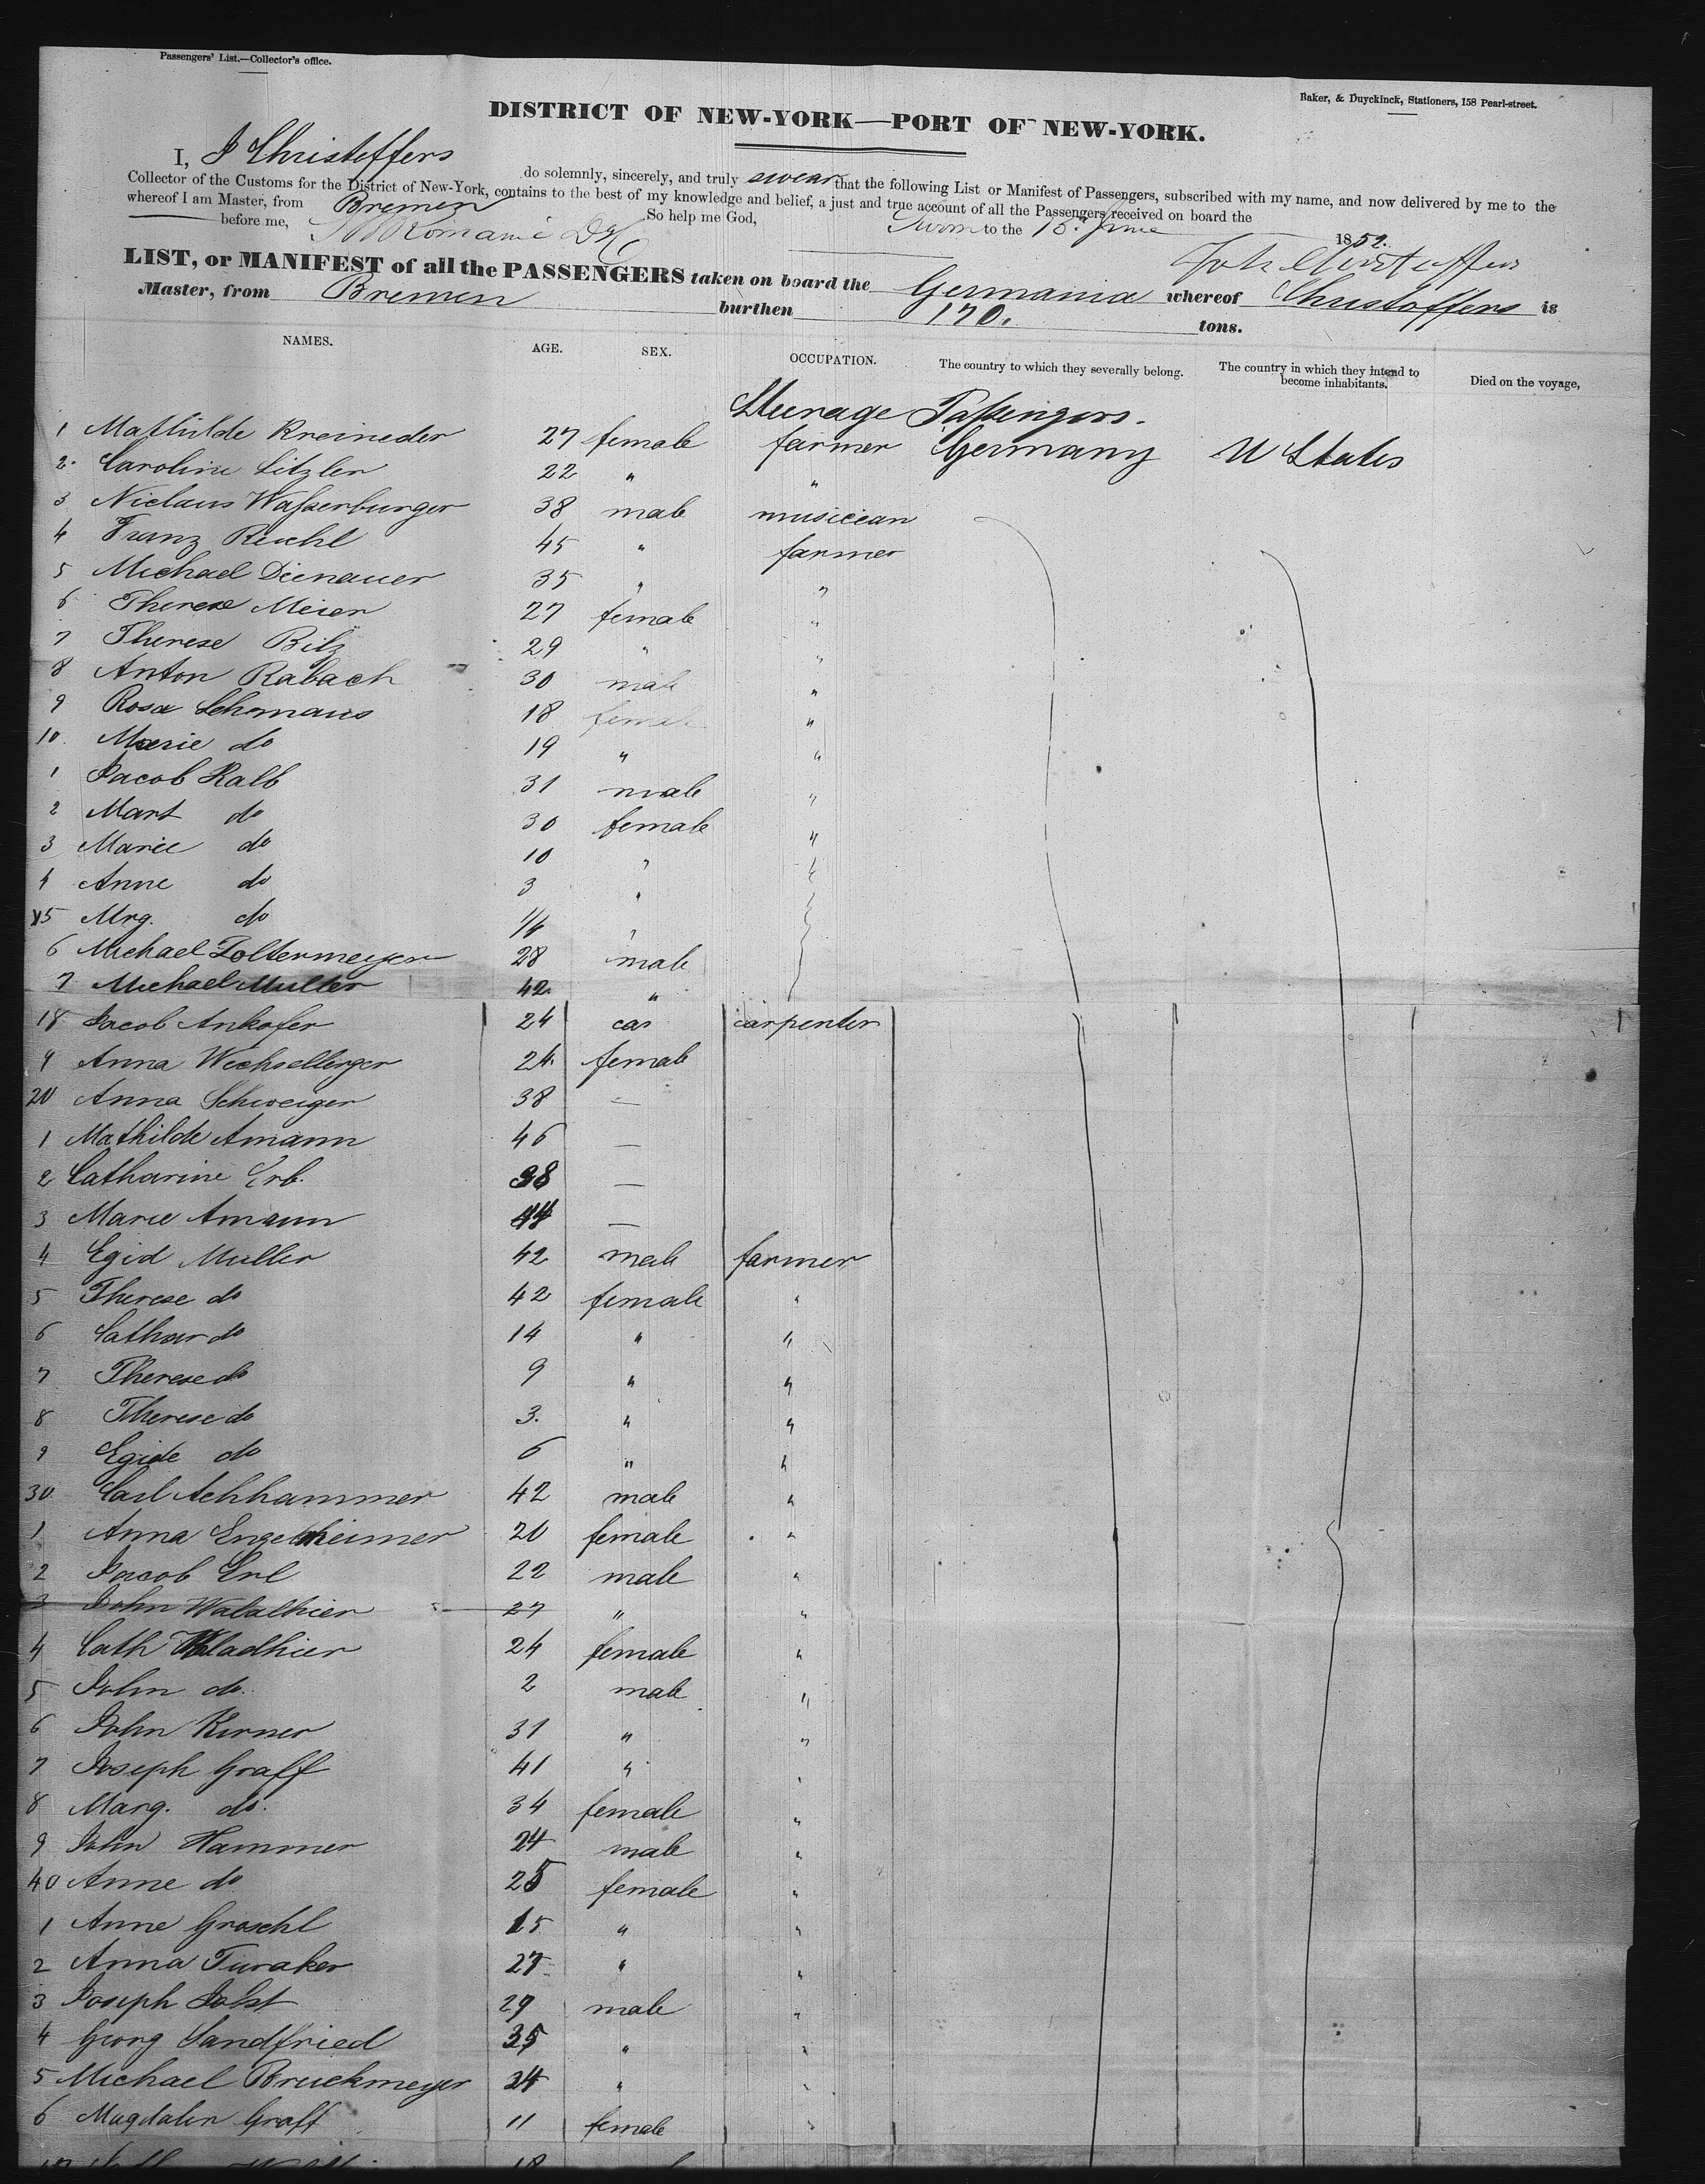 Passengers' List.—Collector's office.
Baker, & Duyckinck, Stationers, 158 Pearl-street.
DISTRICT OF NEW-YORK—PORT OF NEW-YORK.
I, J Christoffers do solemnly, sincerely, and truly swear that the following List or Manifest of Passengers, subscribed with my name, and now delivered by me to the
Collector of the Customs for the District of New-York, contains to the best of my knowledge and belief, a just and true account of all the Passengers received on board the
whereof I am Master, from Bremen
So help me God,
before me, to the 18 June 1852.
LIST, or MANIFEST of all the PASSENGERS taken on board the Germania whereof Christoffers is
Master, from Bremen burthen 170. tons.
NAMES. AGE. SEX. OCCUPATION. The country to which they severally belong. The country in which they intend to become inhabitants. Died on the voyage,
Sturage Passengers.
1 Mathilde Kreineder 27 female farmer Germany U States
2. Caroline Litzler 22 " "
3 Niclaus Wasserburger 38 male musiccan
4 Franz Reichl 45 " farmer
5 Michael Dienauer 35 " "
6 Therese Meier 27 female "
7 Therese Bilz 29 " "
8 Anton Rabach 30 male "
9 Rosa Lehmaus 18 female "
10. Marie do 19 " "
1 Jacob Kalb 31 male "
2 Mart do 30 female "
3 Marie do 10 "
4 Anne do 3 "
15 Mrg. do "
6 Michael Poltermeyer 28 male
7 Michael Muller 42 "
18 Jacob Ankofer 24 car carpenter
9 Anna Wechsellerger 24 female
20 Anna Schweiger 38 —
1 Mathilde Amann 46 —
2 Catharine Erb. 38 —
3 Marie Amann 44 —
4 Egid Muller 42 male farmer
5 Therese do 42 female "
6 Cathar do 14 " "
7 Therese do 9 " "
8 Therese do 3. " "
9 Egide do 6 " "
30 Carl Achhammer 42 male "
1 Anna Engelheimer 20 female "
2 Jacob Erl 22 male "
3 John Walalhier 27 " "
4 Cath Waladhier 24 female "
5 John do. 2 male "
6 John Kirner 31 " "
7 Joseph Graff 41 "
8 Marg. do. 34 female "
9 John Hammer 24 male "
40 Anne do 25 female "
1 Anne Groschl 15 " "
2 Anna Turaker 27 " "
3 Joseph Jobst 29 male "
4 Georg Sandfried 35 " "
5 Michael Bruckmeyer 24 "
6 Magdalen Graff 11 female